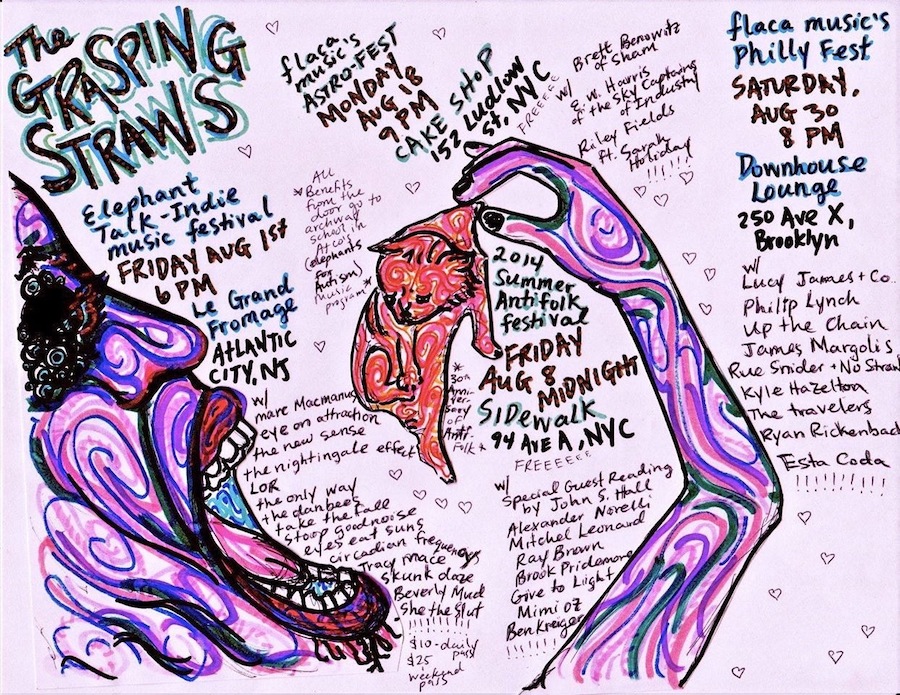 The
GRASPING
STRAWS
Elephant
Talk-Indie
music festival
FRIDAY AUG 1st
6 PM
Le Grand
Fromage
ATLANTIC
CITY, NJ
w/
marc Macmanus
eye on attraction
the new sense
the nightingale effect
LOR
the only way
the danbees
take the fall
stoop goodnoise
eyes eat suns
circadian frequencys
Tracy mace
Skunk daze
Beverly Mud
She the Slut
!!!!!!!!!!
$10-daily
pass
$25
weekend
pass
*All
Benefits
from the
door go to
archway
school in
Atco's
(elephants
For
Autism)
music
program*
flaca
music's
ASTRO-FEST
MONDAY
AUG 18
9 PM
CAKE SHOP
152 Ludlow
St, NYC
FREEEEE
w/
Brett Berowitz
of Sham
E. W. Harris
of the Sky Captains
of Industry
Riley Fields
ft. Sarah
Holiday
!!!!!!
2014
Summer
Antifolk
festival
FRIDAY
AUG 8
MIDNIGHT
SIDewalk
94 AVE A, NYC
FREEEEEE
*
30th
Anni-
ver-
sary
of
Anti-
Folk *
w/
Special Guest Reading
by John S. Hall
Alexander Norelli
Mitchel Leonard
Ray Brown
Brook Pridemore
Give to Light
Mimi oz
Ben Kreiger
!!!!!!!!!
flaca music's
Philly Fest
SATURDAY,
AUG 30
8 PM
Downhouse
Lounge
250 Ave X,
Brooklyn
w/
Lucy James + Co..
Philip Lynch
Up the Chain
James Margolis
Rue Snider + No Straw
Kyle Hazelton
The travelers
Ryan Rickenbac
Esta Coda
!!!!!!!!!!